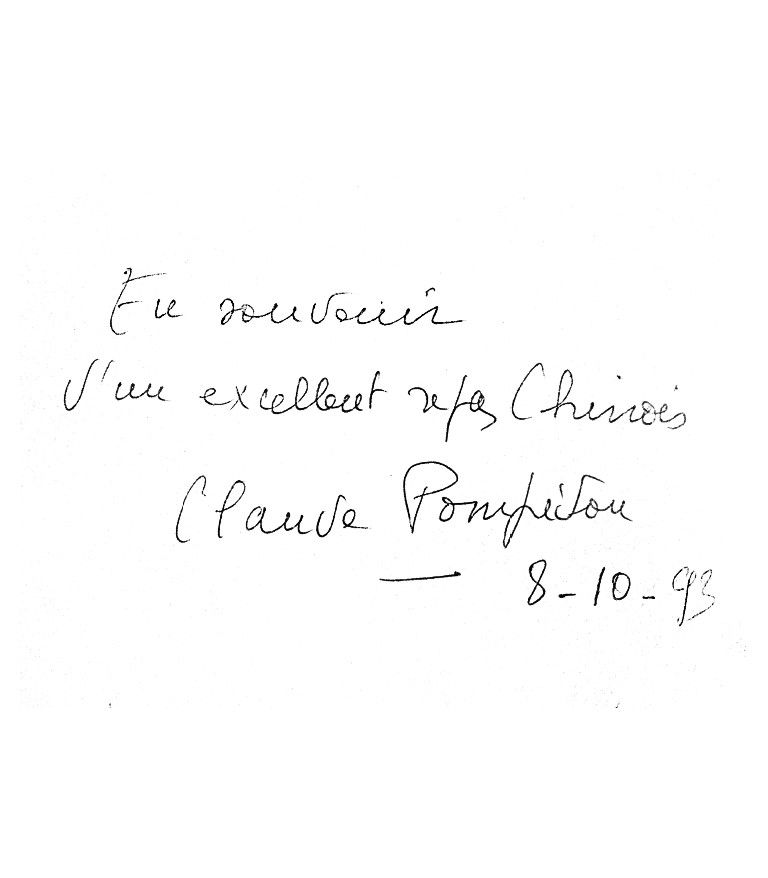 En souvenir
d'un excellent repas Chinois
Claude Pompidou
8-10-93